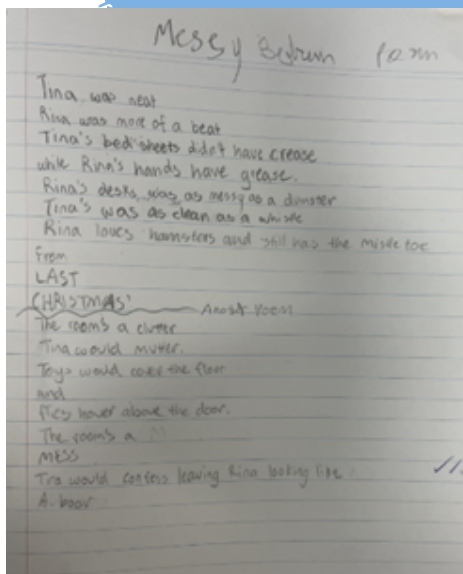 Messy Bedrum
Tina was neat
Rina was more of a beat
Tina's bed sheets didn't have crease
while Rina's hands have grease.
Rina's desks was as messy as a
Tina's was as clean as a whisle
Rina loves hamsters and still has the misle toe
From
LAST
CHRISTMAS'
The room's a clutter
Tina would mutter.
Toys would cover the floor
and
flies hover above the door.
The room's a
MESS
would confess leaving Rina looking like
A. boar